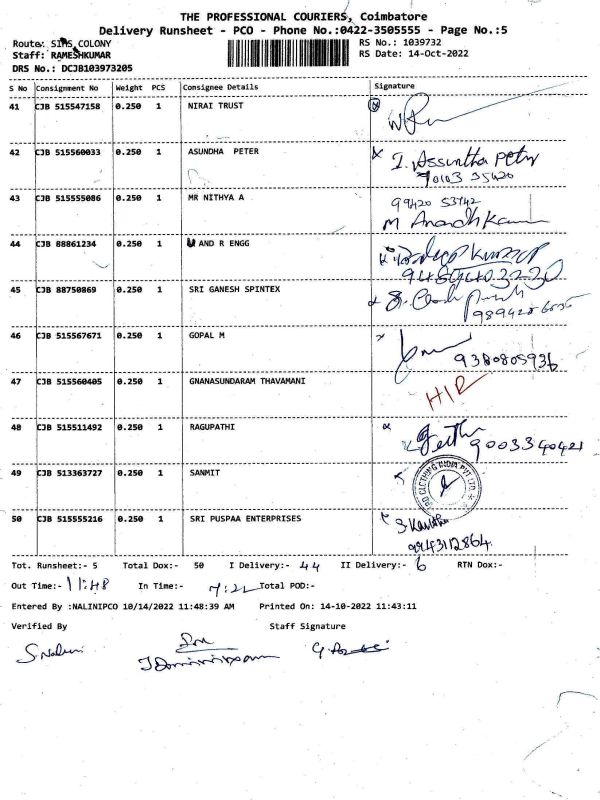 THE PROFESSIONAL COURIERS, Coimbatore
Delivery Runsheet - PCO - Phone No.:0422-3505555 - Page No.:5
Route: SIMS COLONY
RS No.: 1039732
Staff: RAMESHKUMAR
RS Date: 14-Oct-2022
DRS No.: DCJB103973205
S No Consignment No Weight PCS Consignee Details Signature
41 CJB 515547158 0.250 1 NIRAI TRUST
42 CJB 515560033 0.250 1 ASUNDHA PETER I. Assuntha Peter
70103 35420
43 CJB 515555086 0.250 1 MR NITHYA A 99420 53742
M Anandh Kumar
44 CJB 88861234 0.250 1 U AND R ENGG
9489403230
45 CJB 88750869 0.250 1 SRI GANESH SPINTEX
46 CJB 515567671 0.250 1 GOPAL M 9380805936
47 CJB 515560405 0.250 1 GNANASUNDARAM THAVAMANI H/R
48 CJB 515511492 0.250 1 RAGUPATHI 9003340421
49 CJB 513363727 0.250 1 SANMIT CLOTHING INDIA PVT LTD.
50 CJB 515555216 0.250 1 SRI PUSPAA ENTERPRISES S. Kavitha
9943112864
Tot. Runsheet:- 5 Total Dox:- 50 I Delivery:- 44 II Delivery:- 6 RTN Dox:-
Out Time:- 11:48 In Time:- 7:22 Total POD:-
Entered By :NALINIPCO 10/14/2022 11:48:39 AM Printed On: 14-10-2022 11:43:11
Verified By Staff Signature
S.Nalini